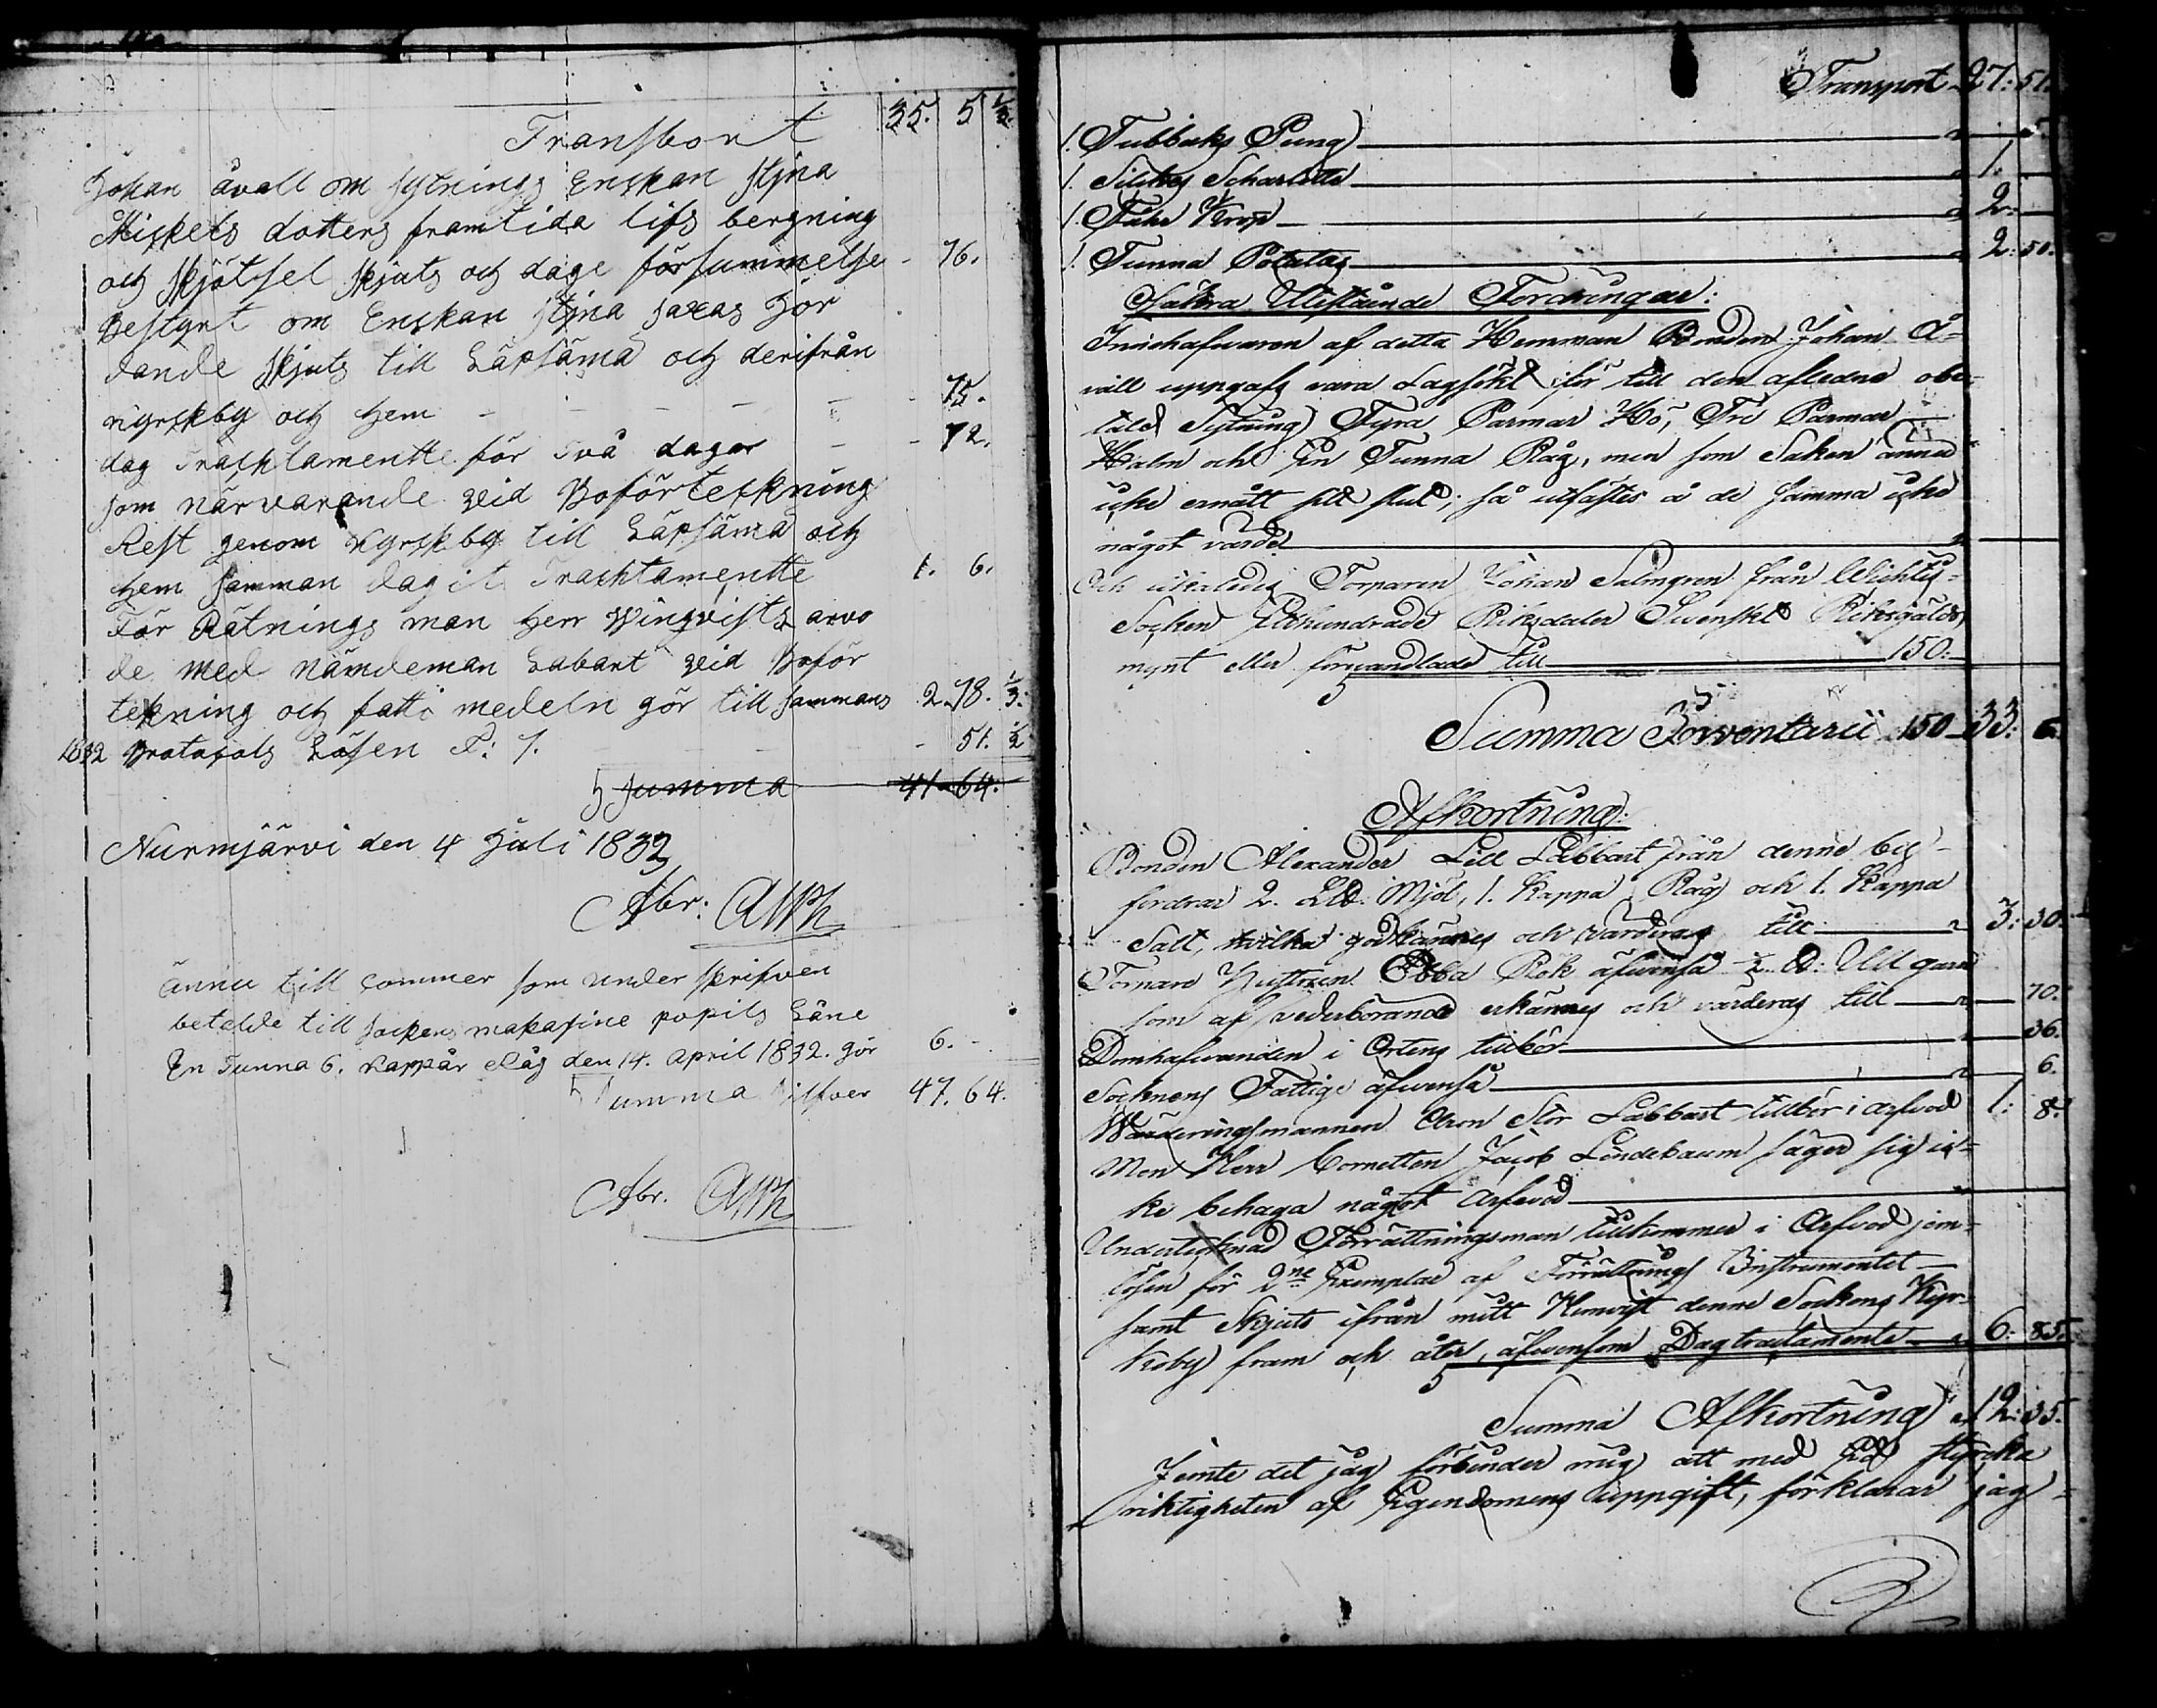 Transport 35. 5 1/3.
Johan åvall om sytnings Enskan stjna
Miskels dotters framtida lifs bergning
och skjötsel skjuts och dage försummelse - 76.
Bestynt om Enskan stjna saxas Hör
dande skjuts till Läpsämä och derifrån
kyrskby och hem - - - - - 75.
dag Trachtamentte för Två dagar - - 72.
som närvarande veid Boförteckning
Rest genom kyrskby till Läpsämä och
hem samman dag it Trachtamentte 1. 6.
För Rätnings man herr Winqvists arvo
de med nämdeman Labart veid Boför
tekning och fatti medeln gör till sammans 2. 78. 1/3.
1832 Protocols Lösen P: 7. - 51. 1/2
Summa 41 64.
Nurmjärvi den 4 Juli 1832
Abr: Alph
ännu till commer som under skrifven
betelde till sockens makasine popils Låne
En Tunna 6. kappar Råg den 14. April 1832. gör 6. -
Summa Silfver 47. 64.
Abr. Alph
Transport 27: 51.
1. Tubbaks Pung
1. Silkes 1.
1. Fåhr Kropp 2:
1. Tunna Potatas 2: 50.
Säkra Utestående Fordringar:
Innehafvaren af detta Hemman Bonden Johan Å-
väll uppgafs vara Lagsökt för till den aflednes obe-
tald Sytning Fyra Parmar Hö, Tre Parmar
Halm och En Tunna Råg, men som Saken ännu
icke ernått sitt slut; så utsattes å de samma icke
något värde
Och likaledes Torparen Johan Salmgren från Wichtis-
Socken Etthundrade Riksdaler Svenskt Riksgälds
mynt eller förvandlade till 150.
Summa Inventarii 150 33: 6
Afkortning:
Bonden Alexander Lill Labbart från denne by
fordrar 2. Lld. Mjöl, 1. Kappa Råg och 1. Kappa
Salt, hvilka godkännes och värderas till 3: 30.
Torpare Hustrun Ebba Rök äfvenså 1/2 ℔: Ull garn
som af vederbörande erkännes och värderas till 70.
Domhafvanden i Orten tillkör 36.
Socknens Fattige äfvenså 6.
Wärderingsmannen Aron Stor Labbart tillkör i arfvod 1: 8.
Men Herr Cornetten Jacob Lindebaum säger sig ic-
ke behaga något Arfvod
Undertecknad Förrättningsman tillkommer i Arfvod jem-
lösen för 2ne Exemplar af Förrättnings Instrumentet
samt Skjuts ifrån mitt Hemvist denne Sockens Kyr-
koby fram och åter, äfvensom Dagtractamente 6: 85.
Summa Afkortning 12: 35.
Jemte det jag förbinder mig att med Ed styrcka
riktigheten af Egendomens uppgift, förklarar jag